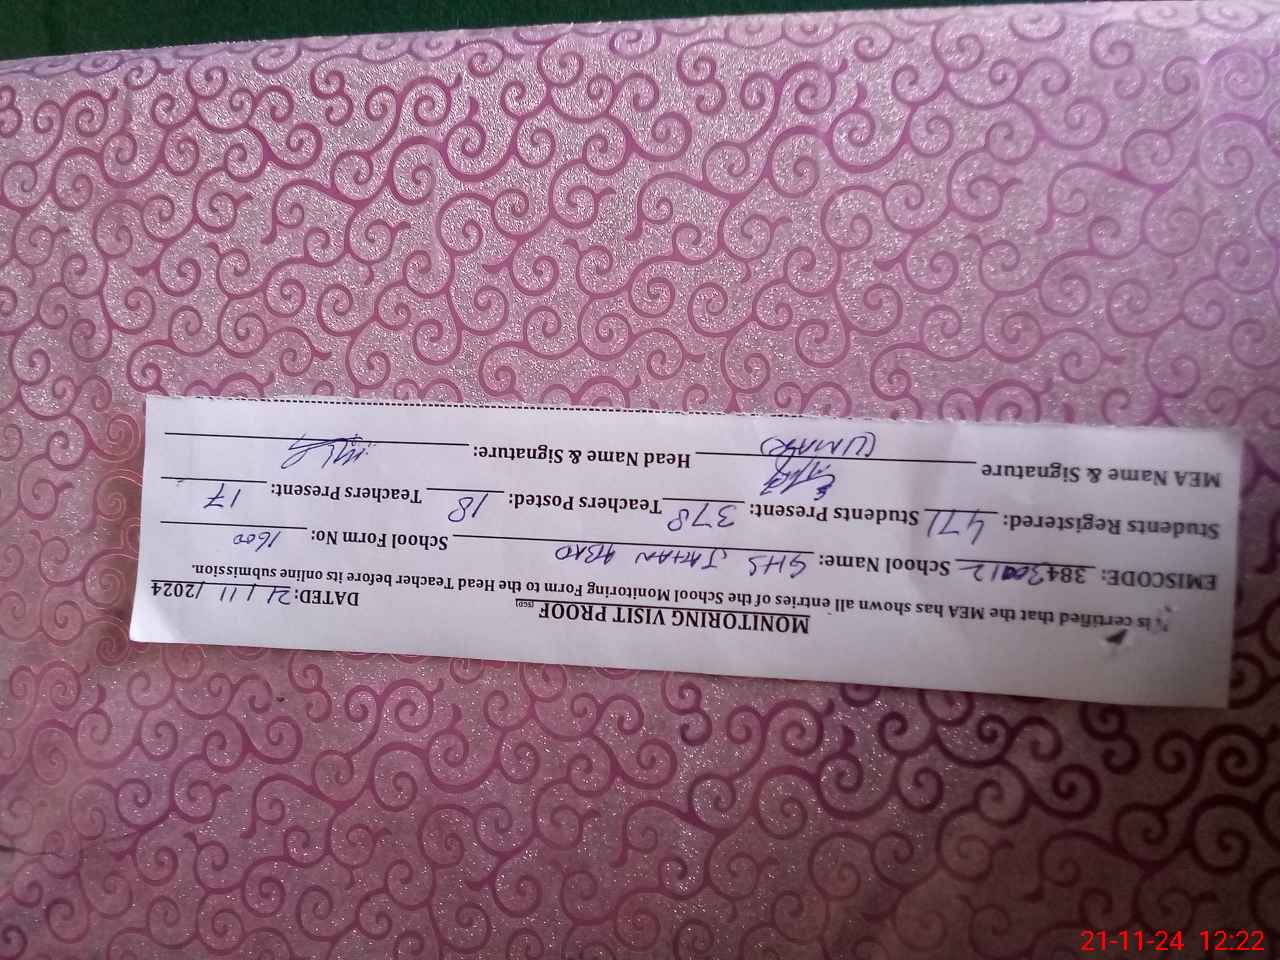 MONITORING VISIT PROOF (SGD)
DATED: 21/11/2024
is certified that the MEA has shown all entries of the School Monitoring Form to the Head Teacher before its online submission.
EMISCODE: 38430012 School Name: GHS JAHAN ABAD School Form No: 1600
Students Registered: 471 Students Present: 378 Teachers Posted: 18 Teachers Present: 17
MEA Name & Signature UMAR Head Name & Signature:
21-11-24 12:22